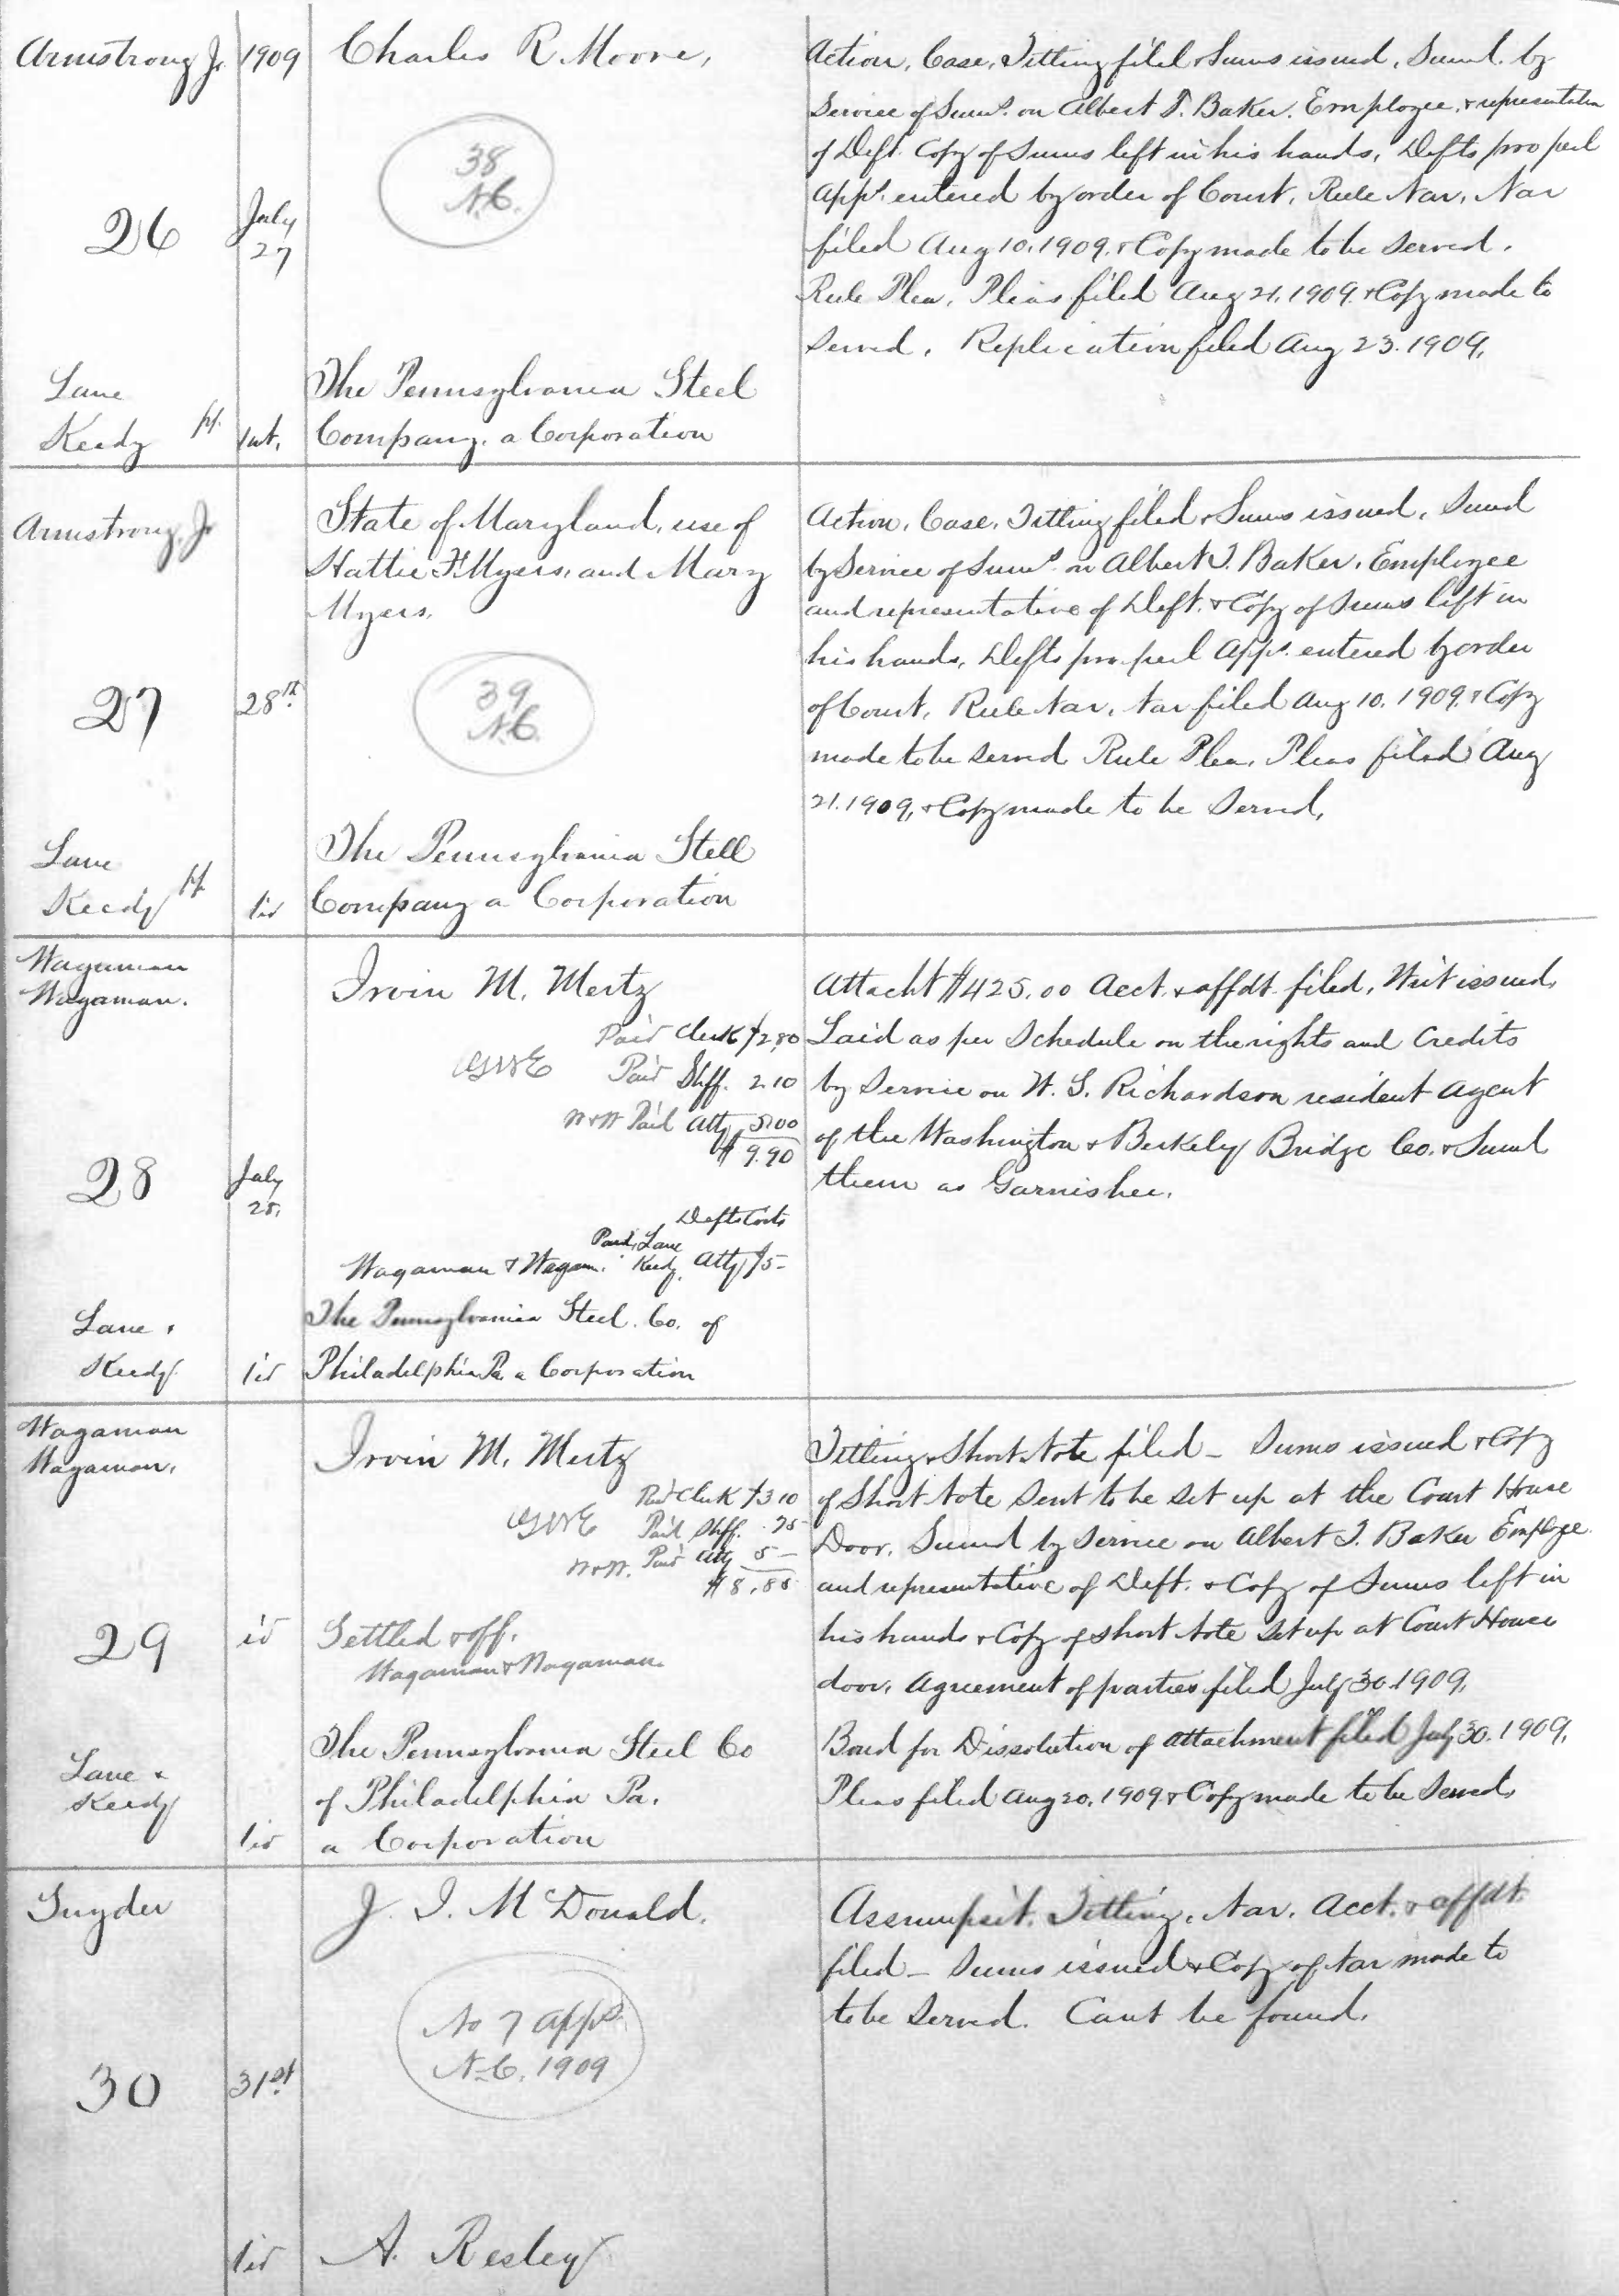 Armstrong Jr.
1909
Charles R. Moore,
38
N.C.
26
July
27
Lane
Keedy
The Pennsylvania Steel
Company. a Corporation
Action, Case, Titling filed & Sums issued, Sumd. by
Service of Sums. on Albert T. Baker. Employee. & representative
of Deft. Copy of Sums left in his hands, Defts pro perl
appe. entered by order of Court, Rule Nar, Nar
filed Aug 10, 1909, & Copy made to be served.
Rule Plea, Pleas filed Aug 21, 1909. & Copy made to
served. Replication filed Aug 23. 1909,
Armstrong, Jr
State of Maryland, use of
Hattie F. Myers, and Mary
Myers.
39
N.C.
27
28th
Lane
Keedy
The Pennsylvania Stell
Company a Corporation
Action, Case, Titling filed & Sums issued, Sumd
by Service of Sums. on Albert T. Baker, Employee
and representative of Deft. & Copy of Sums left in
his hands, Defts pro. perl appe. entered by order
of Court, Rule Nar, Nar filed Aug 10, 1909, & Copy
made to be served Rule Plea, Pleas filed Aug
21. 1909, & Copy made to be Served,
Wagaman
Wagaman.
Irvin M. Mertz
Paid Clerk $2.80
Paid Shff. 2.10
W&W Paid Atty 5.00
$9.90
28
July
28,
Defts Costs
Paid Lane
Wagaman & Wagam. Keedy, Atty $5-
Lane &
Keedy
The Pennsylvania Steel. Co. of
Philadelphia Pa. a Corporation
Attacht $425.00 Acct. & affdt. filed, Writ issued,
Laid as per Schedule on the rights and Credits
by Service on W. S. Richardson resident agent
of the Washington & Berkely Bridge Co. & Sumd
them as Garnishee.
Wagaman
Wagaman,
Irvin M. Mertz
Paid Clerk $3 10
Paid Shff. .75
W&W. Paid Atty 5-
$8.85
29
id
Settled & off.
Wagaman & Wagaman.
Lane &
Keedy
The Pennsylvania Steel Co
of Philadelphia Pa.
a Corporation
Titling & Short Note filed - Sums issued & Copy
of Short Note Sent to be set up at the Court House
Door, Sumd by Service on Albert T. Baker Employee
and representative of Deft. & Copy of Sums left in
his hands & Copy of Short Note Set up at Court House
door, Agreement of parties filed July 30. 1909,
Bond for Dissolution of attachment filed July 30. 1909,
Pleas filed Aug 20, 1909 & Copy made to be Served,
Snyder
J. I. McDonald.
No 7 apps.
N.C. 1909
30
31st
A. Resley
Assumpsit. Titling, Nar. Acct. & affdt.
filed - Sums issued & Copy of Nar made to
to be Served. Cant be found.